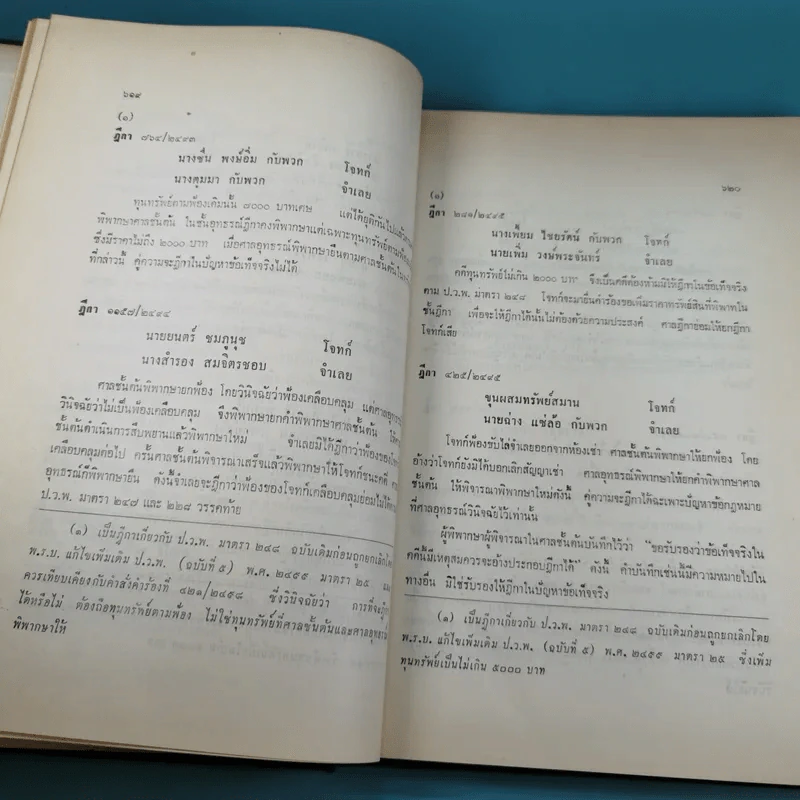 ๖๑๙
(๑)
ฎีกา ๘๖๔/๒๔๙๓
นางชั้น พงษ์อิ่ม กับพวก โจทก์
นางตุมมา กับพวก จำเลย
ทุนทรัพย์ตามฟ้องเดิมนั้น ๘๐๐๐ บาทเศษ แต่ได้ยุติกันไปแล้ว
พิพากษาศาลชั้นต้น ในชั้นอุทธรณ์ฎีกาคงพิพาทแต่เฉพาะทุนทรัพย์ตาม
ซึ่งมีราคาไม่ถึง ๒๐๐๐ บาท เมื่อศาลอุทธรณ์พิพากษายืนตามศาลชั้นต้นใน
ที่กล่าวนี้ คู่ความจะฎีกาในปัญหาข้อเท็จจริงไม่ได้
ฎีกา ๑๑๕๗/๒๔๙๔
นายยนตร์ ชมภูนุช โจทก์
นางสำรอง สมจิตรชอบ จำเลย
ศาลชั้นต้นพิพากษายกฟ้อง โดยวินิจฉัยว่าฟ้องเคลือบคลุม แต่ศาลอุทธรณ์
วินิจฉัยว่าไม่เป็นฟ้องเคลือบคลุม จึงพิพากษายกคำพิพากษาศาลชั้นต้น
ชั้นต้นดำเนินการสืบพยานแล้วพิพากษาใหม่ จำเลยมิได้ฎีกาว่าฟ้องของ
เคลือบคลุมต่อไป ครั้นศาลชั้นต้นพิจารณาเสร็จแล้วพิพากษาให้โจทก์ชนะคดี
อุทธรณ์ก็พิพากษายืน ดังนี้จำเลยจะฎีกาว่าฟ้องของโจทก์เคลือบคลุมย่อมไม่ได้
ป.ว.พ. มาตรา ๒๔๗ และ ๒๒๘ วรรคท้าย
(๑) เป็นฎีกาเกี่ยวกับ ป.ว.พ. มาตรา ๒๔๘ ฉบับเดิมก่อนถูกยกเลิกโดย
พ.ร.บ. แก้ไขเพิ่มเติม ป.ว.พ. (ฉบับที่ ๕) พ.ศ. ๒๔๙๙ มาตรา ๒๕
ควรเทียบเคียงกับคำสั่งคำร้องที่ ๔๒๑/๒๔๙๘ ซึ่งวินิจฉัยว่า การที่จะฎีกา
ได้หรือไม่ ต้องถือทุนทรัพย์ตามฟ้อง ไม่ใช่ทุนทรัพย์ที่ศาลชั้นต้นและศาลอุทธรณ์
พิพากษาให้
๖๒๐
(๑)
ฎีกา ๒๘๑/๒๔๙๕
นางเพี้ยม ไชยรัตน์ กับพวก โจทก์
นายเพิ่ม วงษ์พระจันทร์ จำเลย
คดีทุนทรัพย์ไม่เกิน ๒๐๐๐ บาท จึงเป็นคดีต้องห้ามมิให้ฎีกาในข้อเท็จจริง
ตาม ป.ว.พ. มาตรา ๒๔๘ โจทก์จะมายื่นคำร้องขอเพิ่มราคาทรัพย์สินที่พิพาทใน
ชั้นฎีกา เพื่อจะให้ฎีกาได้นั้นไม่ต้องด้วยความประสงค์ ศาลฎีกาย่อมให้ยกฎีกา
โจทก์เสีย
ฎีกา ๔๒๕/๒๔๙๕
ขุนผสมทรัพย์สมาน โจทก์
นายฉ่าง แซ่ล้อ กับพวก จำเลย
โจทก์ฟ้องขับไล่จำเลยออกจากห้องเช่า ศาลชั้นต้นพิพากษาให้ยกฟ้อง โดย
อ้างว่าโจทก์ยังมิได้บอกเลิกสัญญาเช่า ศาลอุทธรณ์พิพากษาให้ยกคำพิพากษาศาล
ชั้นต้น ให้พิจารณาพิพากษาใหม่ดังนี้ คู่ความจะฎีกาได้ฉะเพาะปัญหาข้อกฎหมาย
ที่ศาลอุทธรณ์วินิจฉัยไว้เท่านั้น
ผู้พิพากษาผู้พิจารณาในศาลชั้นต้นบันทึกไว้ว่า "ขอรับรองว่าข้อเท็จจริงใน
คดีนี้มีเหตุสมควรจะอ้างประกอบฎีกาได้" ดังนี้ คำบันทึกเช่นนี้มีความหมายไปใน
ทางอื่น มิใช่รับรองให้ฎีกาในปัญหาข้อเท็จจริง
(๑) เป็นฎีกาเกี่ยวกับ ป.ว.พ. มาตรา ๒๔๘ ฉบับเดิมก่อนถูกยกเลิกโดย
พ.ร.บ. แก้ไขเพิ่มเติม ป.ว.พ. (ฉบับที่ ๕) พ.ศ. ๒๔๙๙ มาตรา ๒๕ ซึ่งเพิ่ม
ทุนทรัพย์เป็นไม่เกิน ๕๐๐๐ บาท